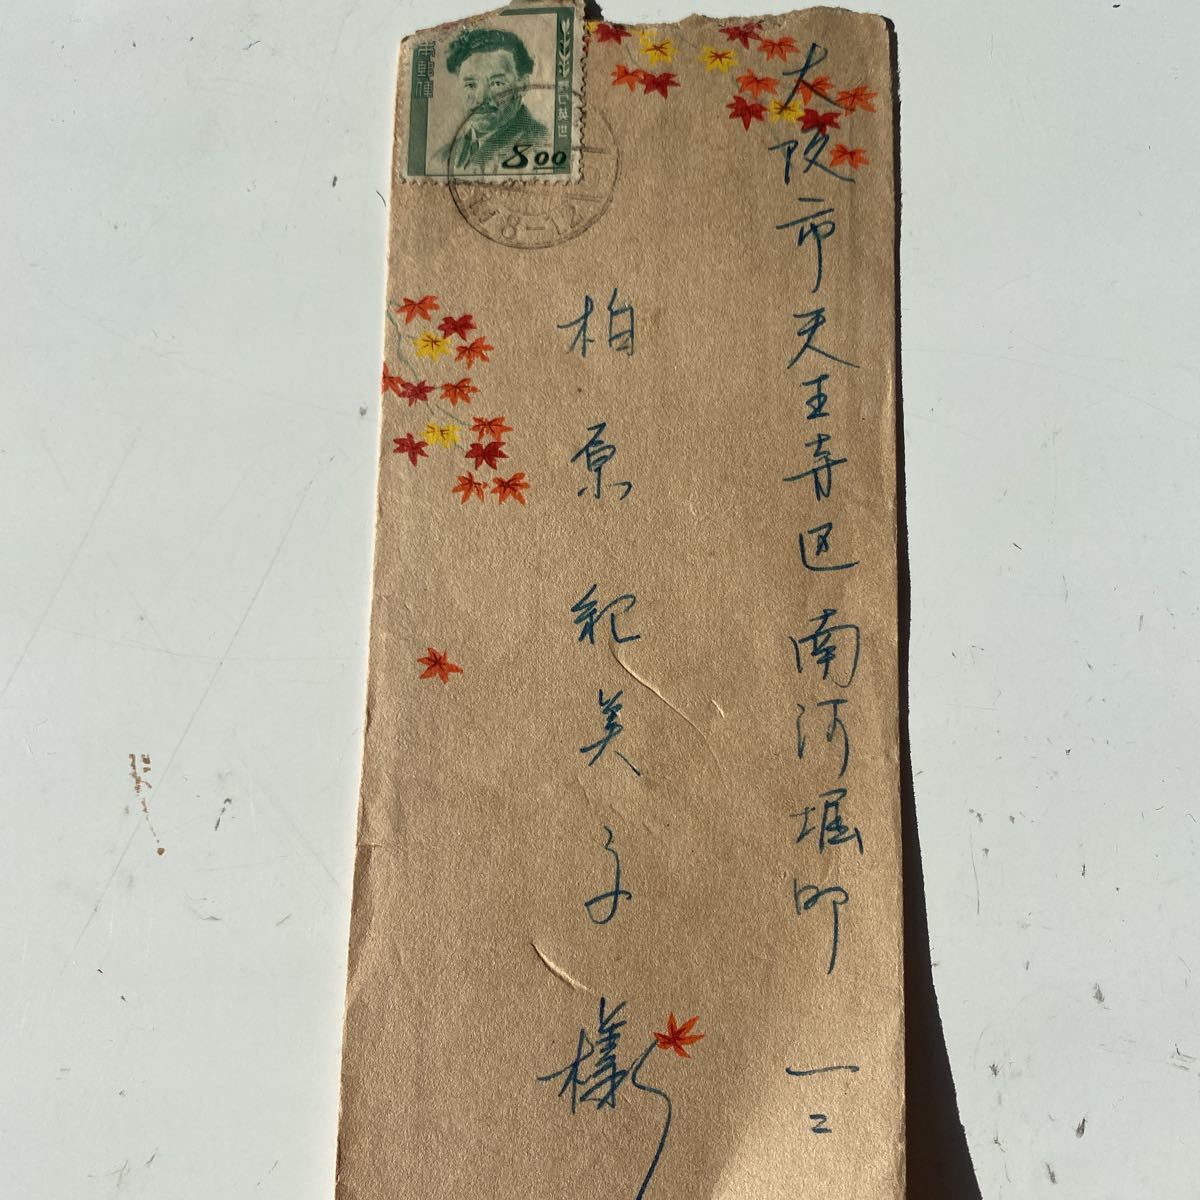 大阪市天王寺区南河堀町一二
柏原紀美子様
日本郵便
野口英世
8.00
8-12